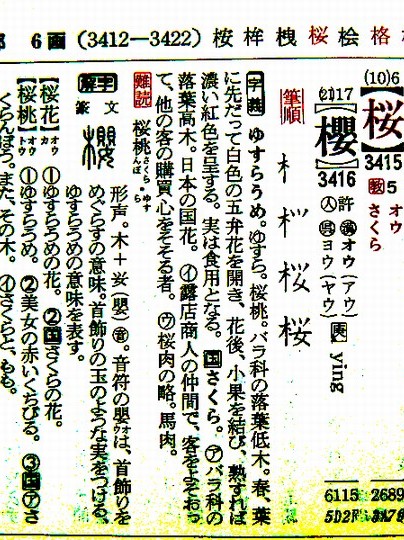 6画(3412―3422)桉桙栧桜桧格
(10)6
【桜】
3415
教5
オウ
さくら
(21)17
【櫻】
3416
人許
漢オウ(アウ)
呉ヨウ(ヤウ)
yīng
6115
5D2F
2689
3A79
筆順
字義 ゆすらうめ。ゆすら。桜桃。バラ科の落葉低木。春、葉
に先だって白色の五弁花を開き、花後、小果を結び、熟すれば
濃い紅色を呈する。実は食用となる。国さくら。㋐バラ科の
落葉高木。日本の国花。㋑露店商人の仲間で、客をよそおっ
て、他の客の購買心をそそる者。㋒桜肉の略。馬肉。
難読 桜桃さくらんぼ・ゆすら
解字
篆文
形声。木+嬰(嬰)音。音符の嬰オは、首飾りを
めぐらすの意味。首飾りの玉のような実をつける、
ゆすらうめの意味を表す。
【桜花】オウカ ①ゆすらうめの花。②国さくらの花。
【桜桃】オウトウ ①ゆすらうめ。②美女の赤いくちびる。③国㋐さ
くらんぼう。また、その木。㋑さくらと、もも。